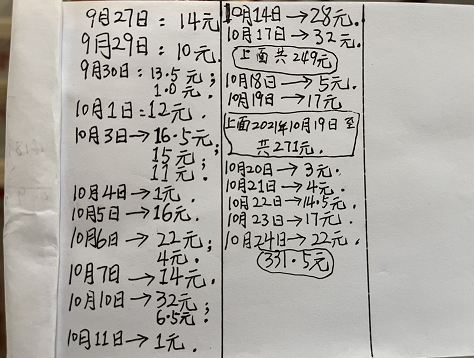 9月27日：14元
9月29日：10元.
9月30日：13.5元；
1.0元.
10月1日：12元.
10月3日→16.5元；
15元；
11元.
10月4日→1元.
10月5日→16元.
10月6日→22元；
4元.
10月7日→14元.
10月10日→32元；
6.5元.
10月11日→1元.
10月14日→28元.
10月17日→32元.
上面共249元
10月18日→5元.
10月19日→17元
上面2021年10月19日至
共271元.
10月20日→3元.
10月21日→4元.
10月22日→14.5元.
10月23日→17元.
10月24日→22元.
331.5元